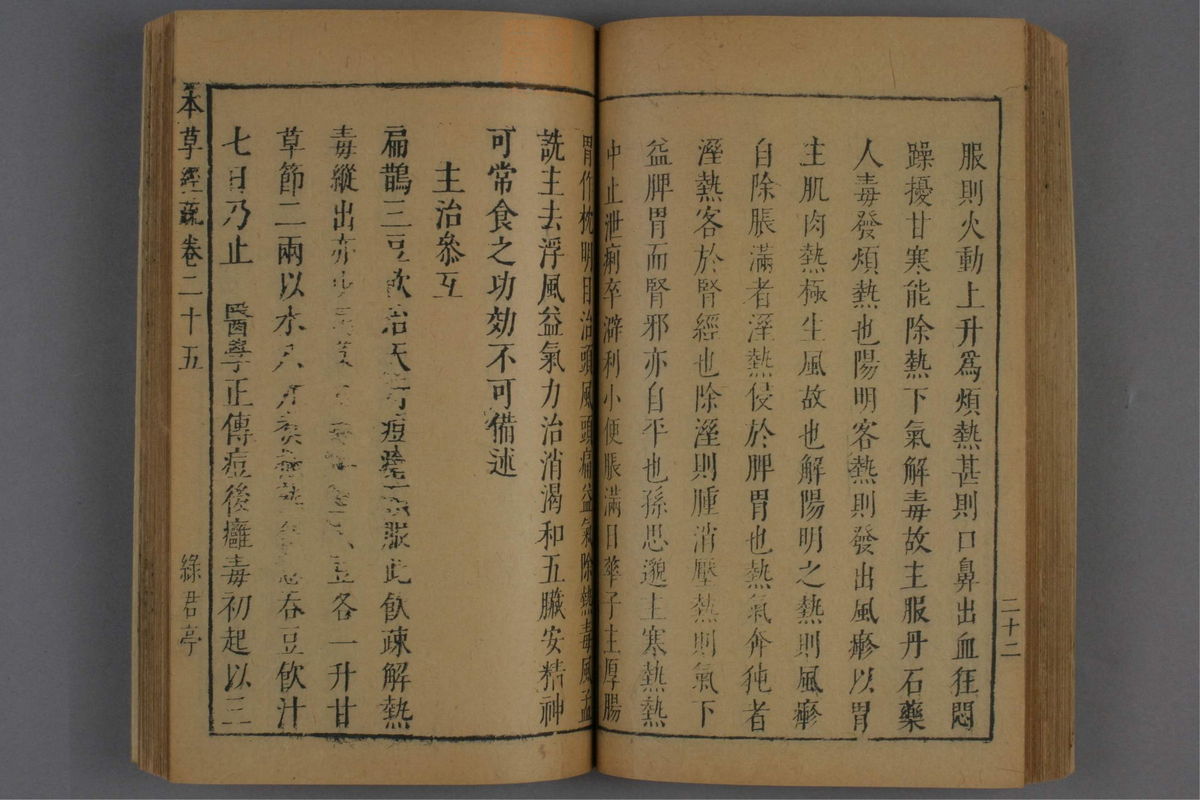 服則火動上升為煩熱甚則口鼻出血狂悶
躁擾甘寒能除熱下氣解毒故主服丹石藥
人毒發煩熱也陽明客熱則發出風瘮以胃
主肌肉熱極生風故也解陽明之熱則風瘮
自除脹滿者溼熱侵於脾胃也熱氣奔㹠者
溼熱客於腎經也除溼則腫消壓熱則氣下
益脾胃而腎邪亦自平也孫思邈主寒熱熱
中止泄痢卒澼利小便脹滿日華子主厚腸
二十二
胃作枕明目治頭風頭痛益氣除熱毒風孟
詵主去浮風益氣力治消渴和五臟安精神
可常食之功効不可備述
主治參互
扁鵲三豆飲治天行痘瘡服此飲疎解熱
毒縱出亦少豆各一升甘
草節二兩以水八升煮熟吞豆飲汁
七日乃止 醫學正傳痘後癰毒初起以三
本草經疏卷二十五
綠君亭